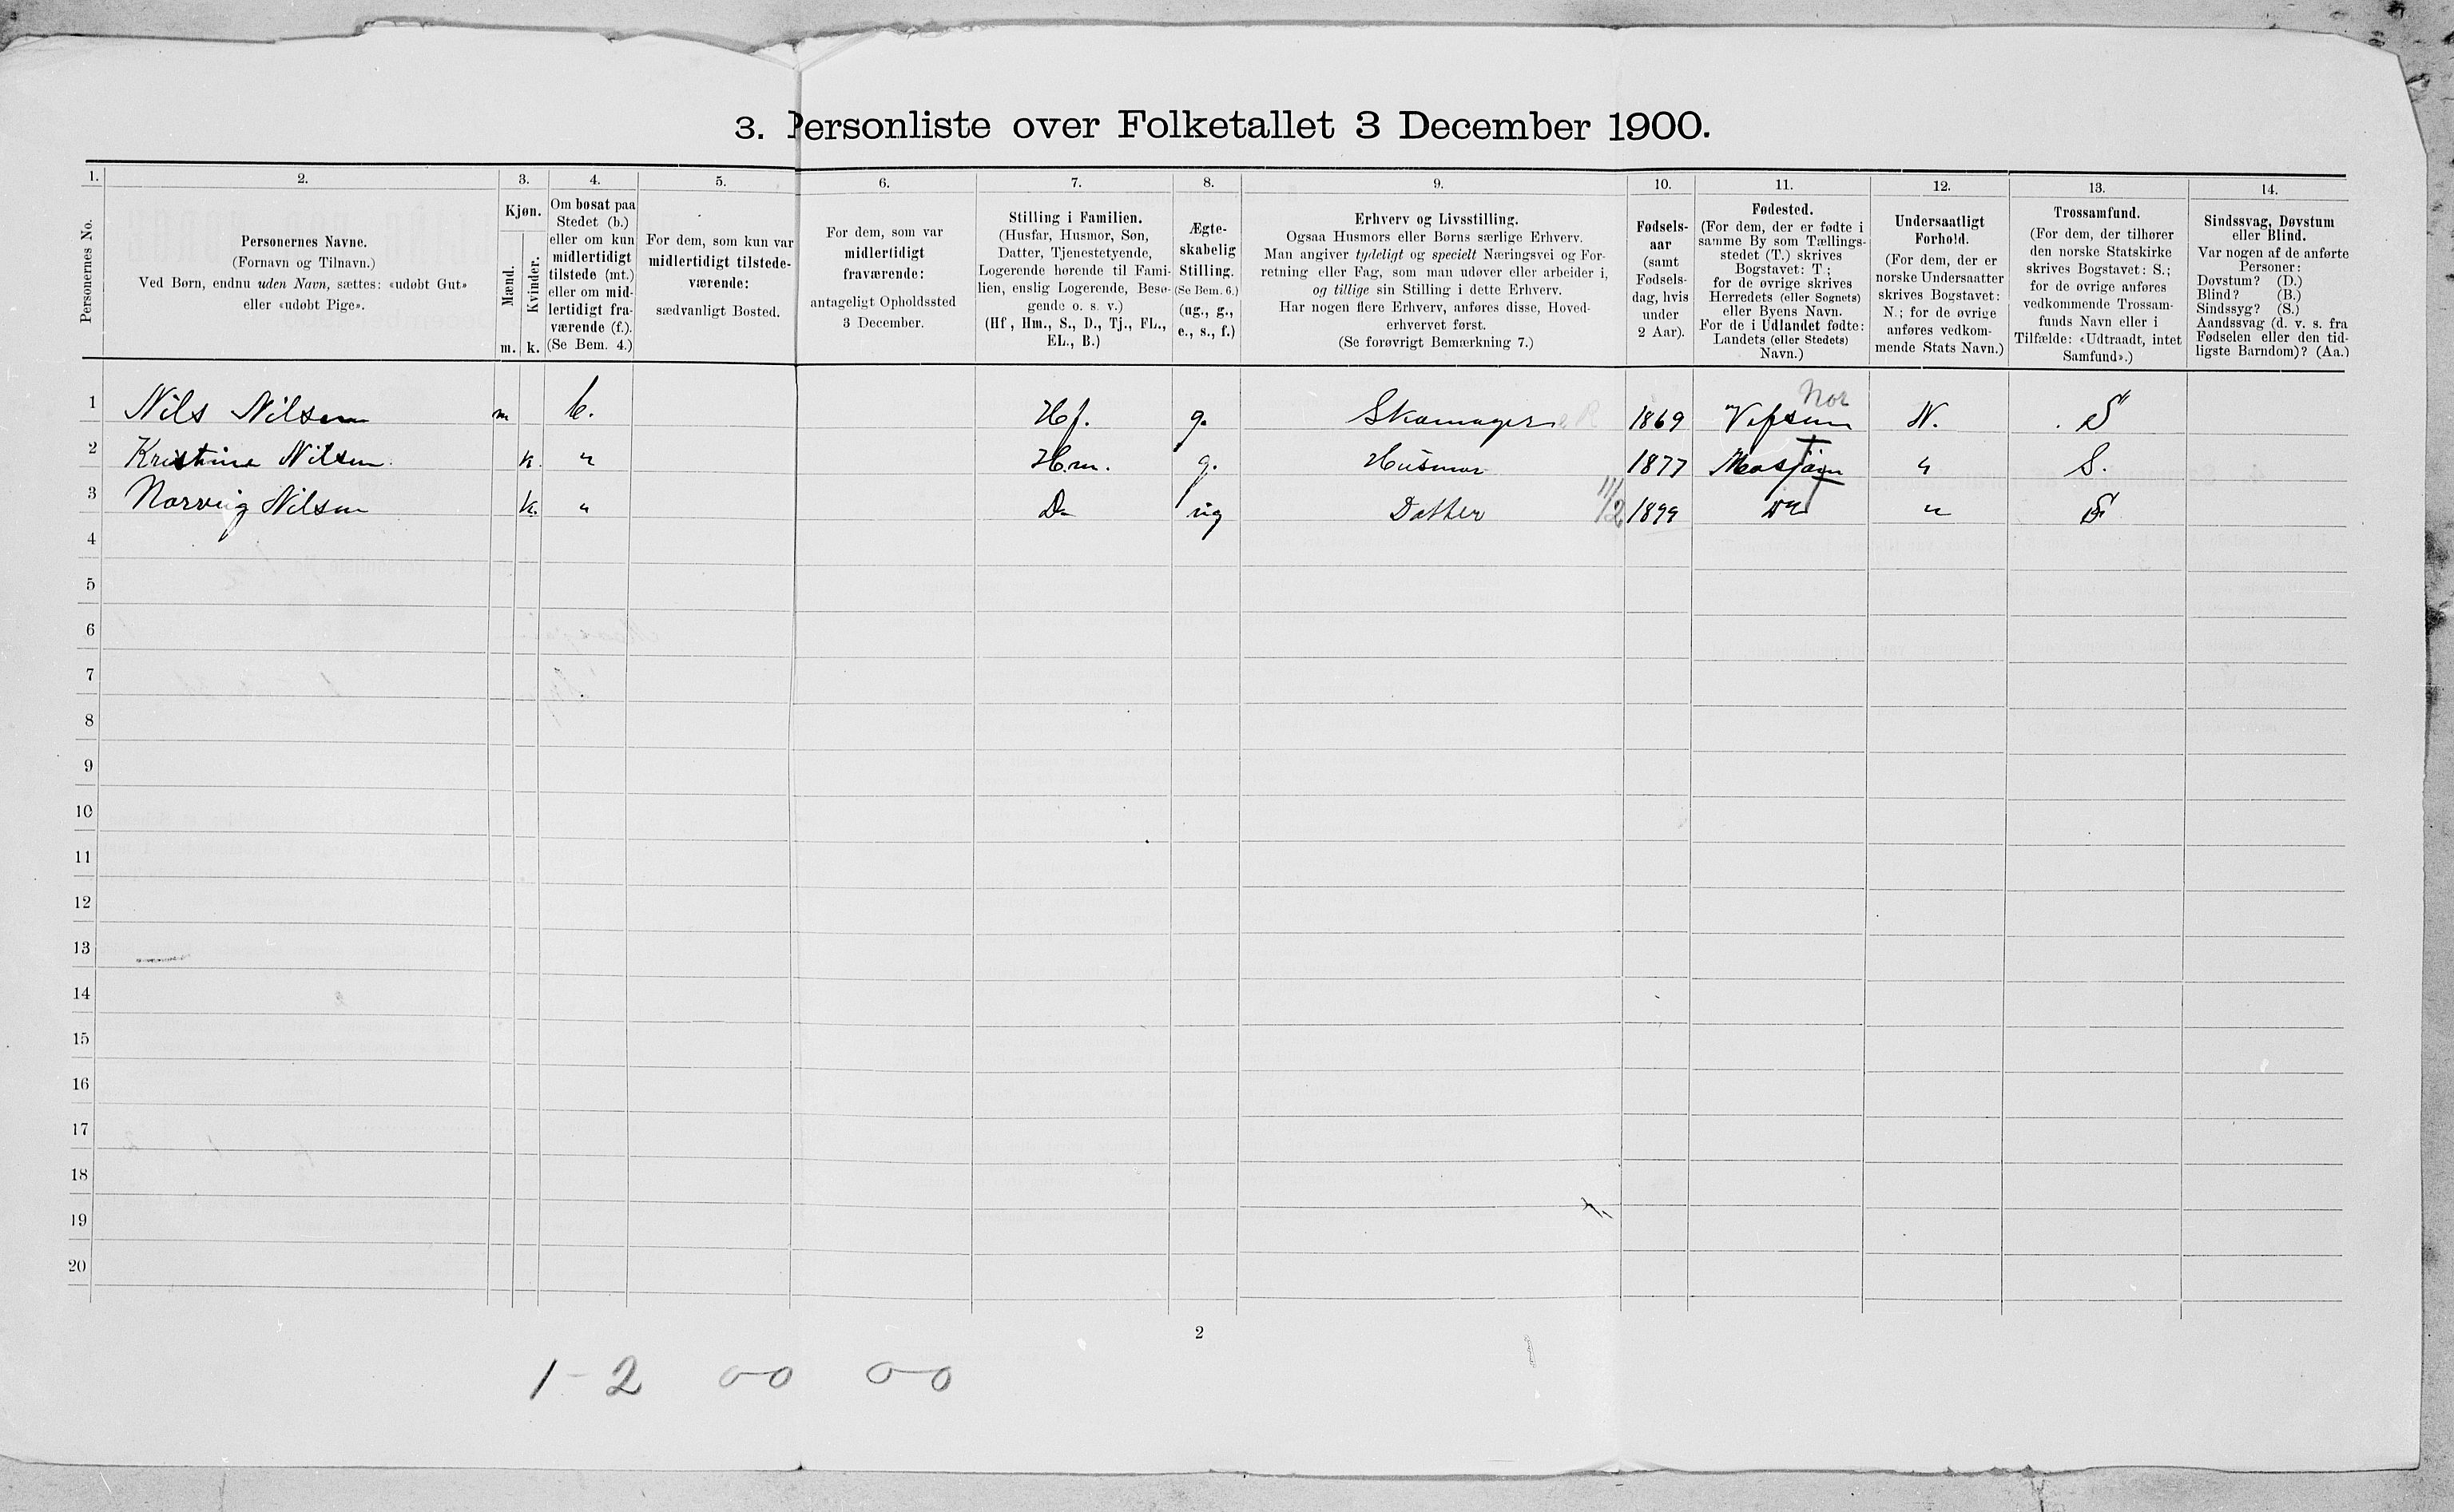 3. Personliste over Folketallet 3 December 1900.
1. 2. 3. 4. 5. 6. 7. 8. 9. 10. 11. 12. 13. 14.
Personernes No.
Personernes Navne.
(Fornavn og Tilnavn.)
Ved Børn, endnu uden Navn, sættes: «udøbt Gut»
eller «udøbt Pige».
Kjøn.
Mænd.
Kvinder.
m. k.
Om bosat paa
Stedet (b.)
eller om kun
midlertidigt
tilstede (mt.)
eller om mid-
lertidigt fra-
værende (f.).
(Se Bem. 4.)
For dem, som kun var
midlertidigt tilstede-
værende:
sædvanligt Bosted.
For dem, som var
midlertidigt
fraværende:
antageligt Opholdssted
3 December.
Stilling i Familien.
(Husfar, Husmor, Søn,
Datter, Tjenestetyende,
Logerende hørende til Fami-
lien, enslig Logerende, Besø-
gende o. s. v.)
(Hf, Hm., S., D., Tj., FL.,
EL., B.)
Ægte-
skabelig
Stilling.
(Se Bem. 6.)
(ug., g.,
e., s., f.)
Erhverv og Livsstilling.
Ogsaa Husmors eller Børns særlige Erhverv.
Man angiver tydeligt og specielt Næringsvei og For-
retning eller Fag, som man udøver eller arbeider i,
og tillige sin Stilling i dette Erhverv.
Har nogen flere Erhverv, anføres disse, Hoved-
erhvervet først.
(Se forøvrigt Bemærkning 7.)
Fødsels-
aar
(samt
Fødsels-
dag, hvis
under
2 Aar).
Fødested.
(For dem, der er fødte i
samme By som Tællings-
stedet (T.) skrives
Bogstavet: T.;
for de øvrige skrives
Herredets (eller Sognets)
eller Byens Navn.
For de i Udlandet fødte:
Landets (eller Stedets)
Navn.)
Undersaatligt
Forhold.
(For dem, der er
norske Undersaatter
skrives Bogstavet:
N.; for de øvrige
anføres vedkom-
mende Stats Navn.)
Trossamfund.
(For dem, der tilhører
den norske Statskirke
skrives Bogstavet: S.;
for de øvrige anføres
vedkommende Trossam-
funds Navn eller i
Tilfælde: «Udtraadt, intet
Samfund».)
Sindssvag, Døvstum
eller Blind.
Var nogen af de anførte
Personer:
Døvstum? (D.)
Blind? (B.)
Sindssyg? (S.)
Aandssvag (d. v. s. fra
Fødselen eller den tid-
ligste Barndom)? (Aa.)
Nor
1 Nils Nilsen m b. Hf. g. Skomager 1869 Vefsen N. S
2 Kristine Nilsen. k. " Hm. g. Husmor 1877 Mosjøen T " S.
3 Norveig Nilsen k. " D. ug Datter 11/2 1899 Do T " S
4
5
6
7
8
9
10
11
12
13
14
15
16
17
18
19
20
2
1 - 2 0-0 0-0